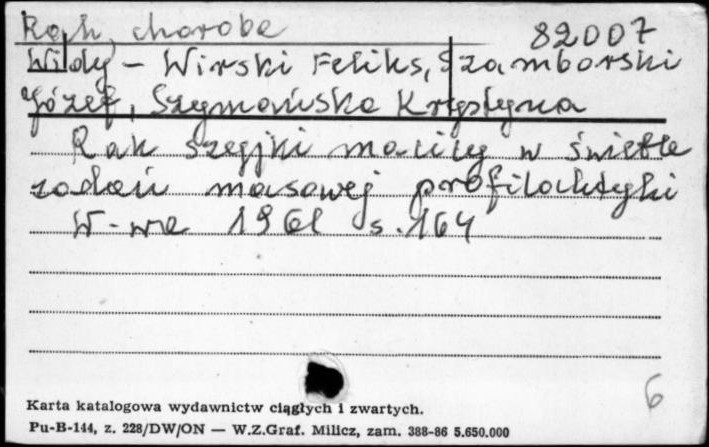 Rak, choroba
82007
Widy-Wirski Feliks, Szamborski
Józef, Szymańska Krystyna
Rak szyjki macicy w świetle
zadań masowej profilaktyki
W-wa 1961 s. 164
6
Karta katalogowa wydawnictw ciągłych i zwartych.
Pu-B-144, z. 228/DW/ON — W.Z.Graf. Milicz, zam. 388-86 5.650.000